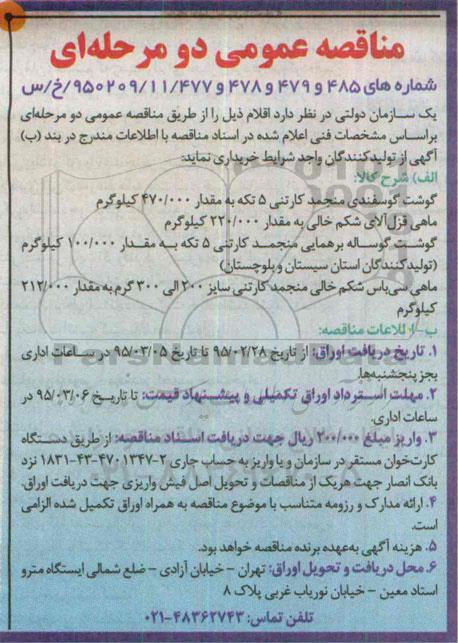 مناقصه عمومی دو مرحله‌ای
شماره های ۴۸۵ و ۴۷۹ و ۴۷۸ و ۹۵۰۲۰۹/۱۱/۴۷۷/خ/س
یک سازمان دولتی در نظر دارد اقلام ذیل را از طریق مناقصه عمومی دو مرحله‌ای
براساس مشخصات فنی اعلام شده در اسناد مناقصه با اطلاعات مندرج در بند (ب)
آگهی از تولیدکنندگان واجد شرایط خریداری نماید:
الف) شرح کالا:
گوشت گوسفندی منجمد کارتنی ۵ تکه به مقدار ۴۷۰/۰۰۰ کیلوگرم
ماهی قزل‌آلای شکم خالی به مقدار ۲۲۰/۰۰۰ کیلوگرم
گوشت گوساله برهمایی منجمد کارتنی ۵ تکه به مقدار ۱۰۰/۰۰۰ کیلوگرم
(تولیدکنندگان استان سیستان و بلوچستان)
ماهی سی‌باس شکم خالی منجمد کارتنی سایز ۲۰۰ الی ۳۰۰ گرم به مقدار ۲۱۲/۰۰۰
کیلوگرم
ب- اطلاعات مناقصه:
۱. تاریخ دریافت اوراق: از تاریخ ۹۵/۰۲/۲۸ تا تاریخ ۹۵/۰۳/۰۵ در ساعات اداری
بجز پنجشنبه‌ها.
۲. مهلت استرداد اوراق تکمیلی و پیشنهاد قیمت: تا تاریخ ۹۵/۰۳/۰۶ در
ساعات اداری.
۳. واریز مبلغ ۲۰۰/۰۰۰ ریال جهت دریافت اسناد مناقصه: از طریق دستگاه
کارت‌خوان مستقر در سازمان و یا واریز به حساب جاری ۲-۴۷۰۱۳۴۷-۴۳-۱۸۳۱ نزد
بانک انصار جهت هریک از مناقصات و تحویل اصل فیش واریزی جهت دریافت اوراق.
۴. ارائه مدارک و رزومه متناسب با موضوع مناقصه به همراه اوراق تکمیل شده الزامی
است.
۵. هزینه آگهی به‌عهده برنده مناقصه خواهد بود.
۶. محل دریافت و تحویل اوراق: تهران – خیابان آزادی – ضلع شمالی ایستگاه مترو
استاد معین – خیابان نوریاب غربی پلاک ۸
تلفن تماس: ۴۸۳۶۲۷۴۳-۰۲۱